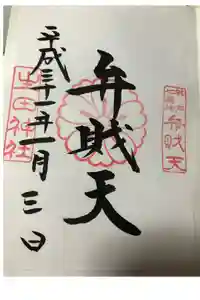 弁財天
弁財天
平成三十一年一月三日
生田神社